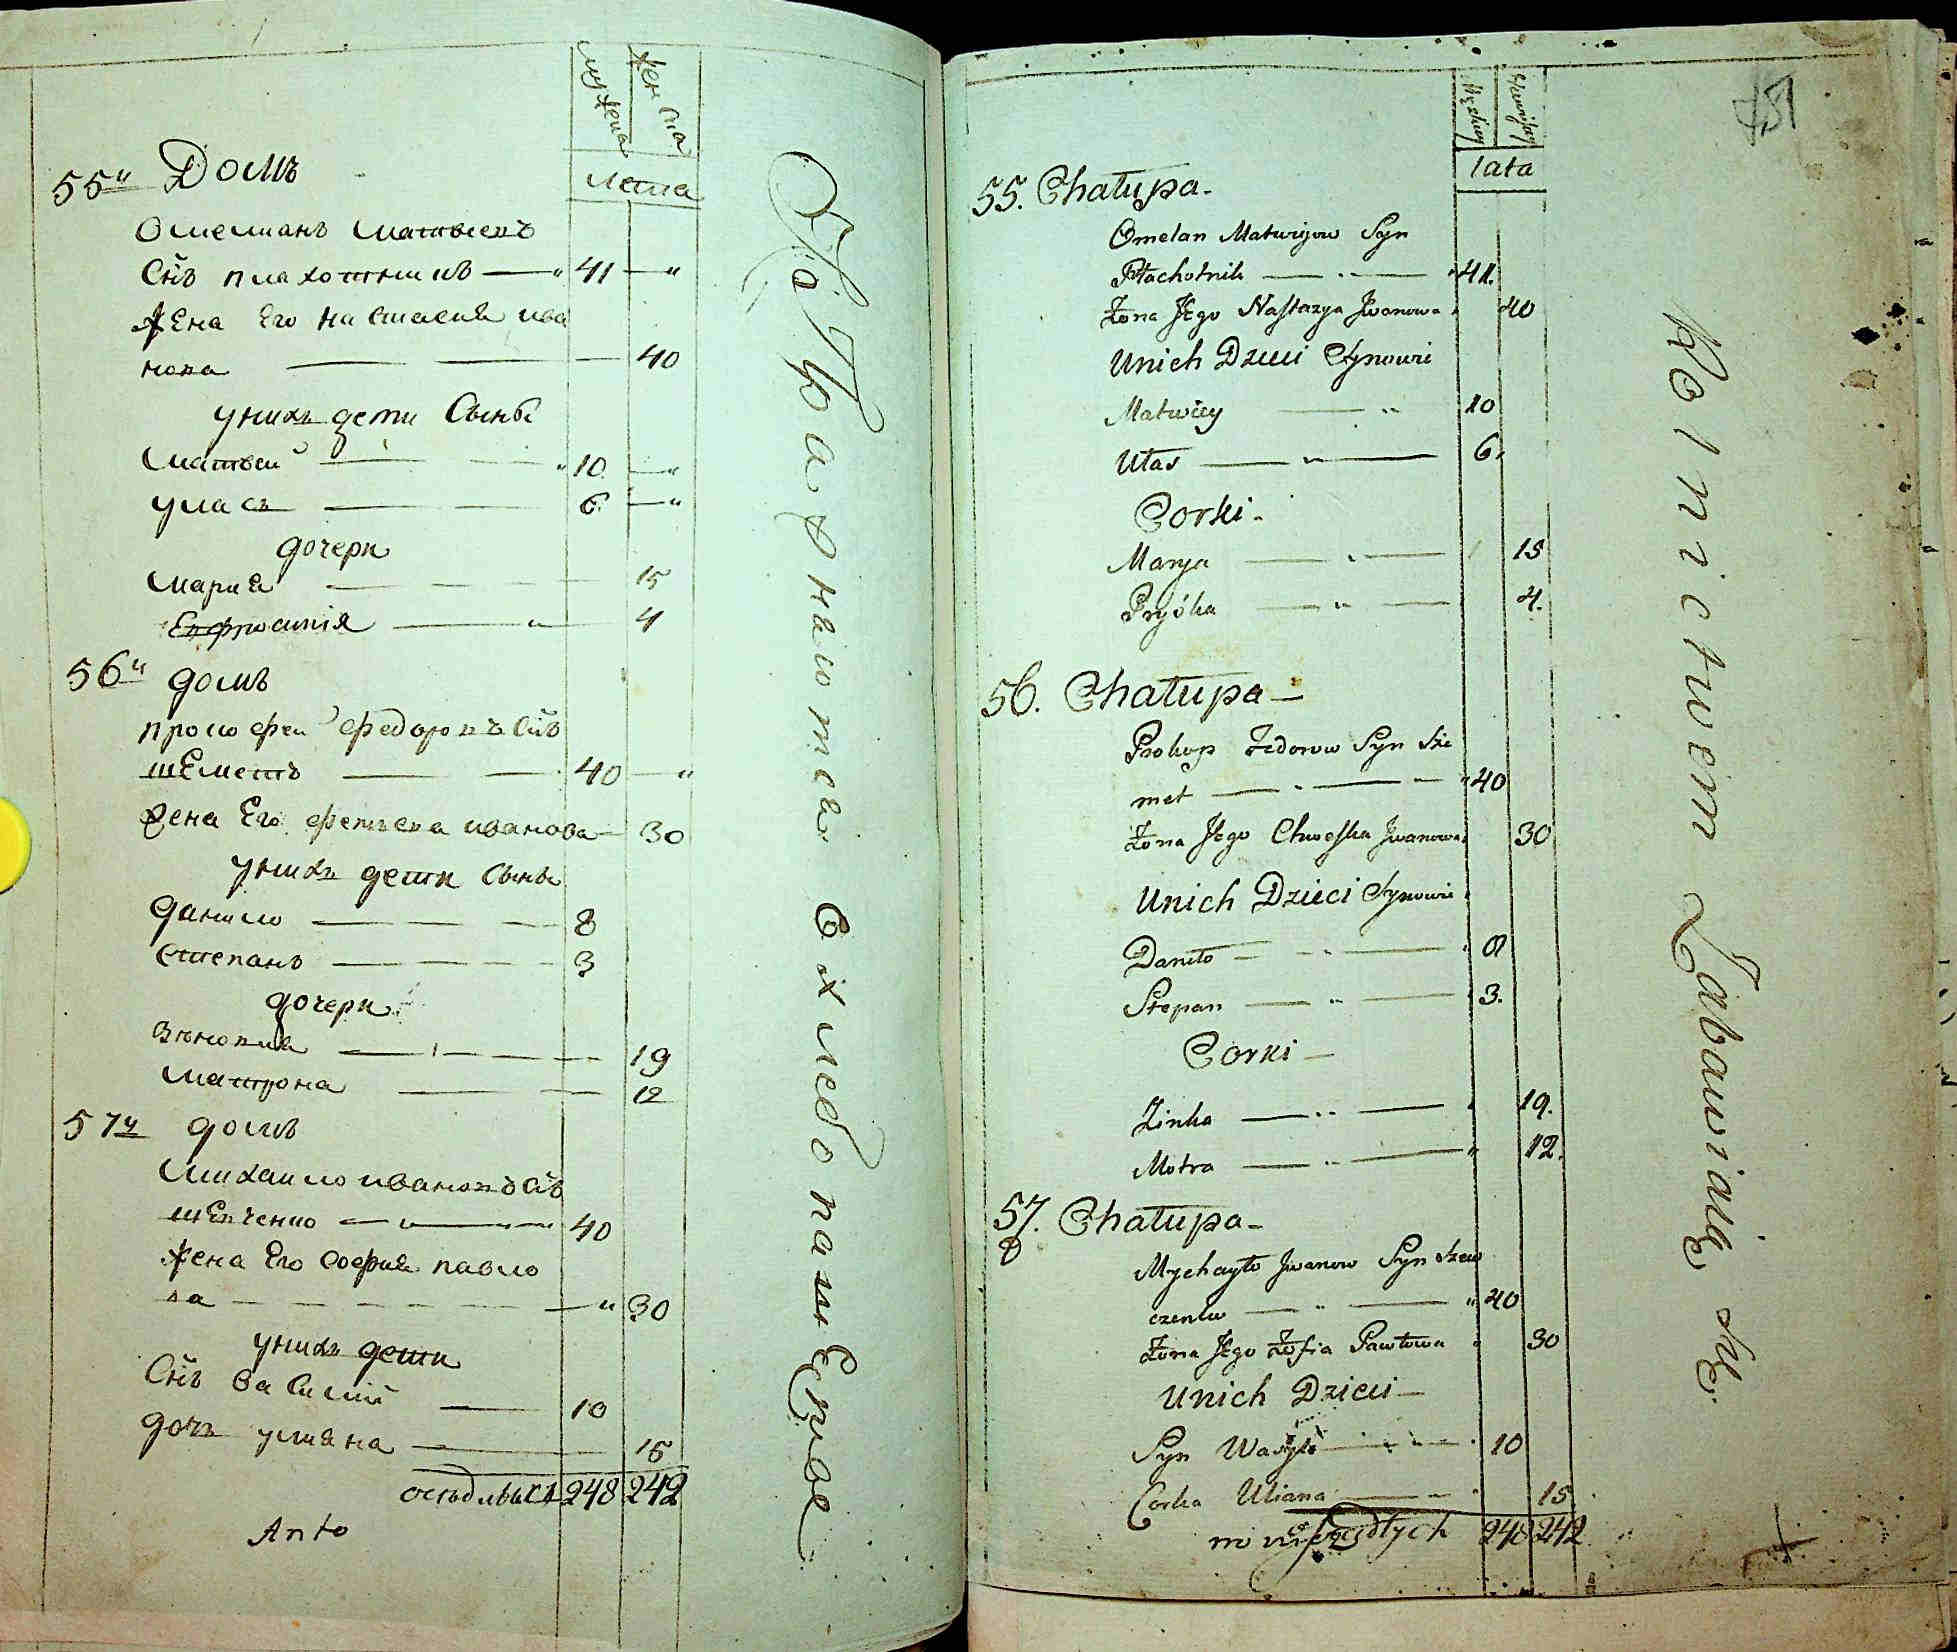 мужеска
женска
лета
55й Домъ
Омельянъ Матвеевъ
Снъ плахотникъ 41
Жена Его Настасия ива
нова 40
у нихъ дети Сыны
Матвей 10
уласъ 6
дочери
Мария 15
Ефросиния 4
56й домъ
Федоровъ Снъ
шЕметъ 40
Жена Его Иванова 30
у нихъ дети Сыны
данило 8
Степанъ 3
дочери
Зѣновия 19
Матрона 12
57й домъ
Михаило ивановъ Снъ
шЕвченко 40
жена Его София павло
ва 30
у нихъ дети
Снъ Василий 10
дочь уляна 15
оседлыхъ 248 242
Anto
хлебопашЕствое
Męskiey
Żenskiey
lata
75
55. Chałupa
Omelan Matwijow Syn
Płachotnik 41.
Żona Jego Nastazya Jwanowa 40
Unich Dzieci Synowie
Matwiey 10
Ułas 6.
Corki
Marya 15
Pryśka 4.
56. Chałupa
Prokop Fedorow Syn Sze
met 40
Żona Jego Chweska Jwanowa 30
Unich Dzieci Synowie
Daniło 8
Stepan 3.
Corki
Zinka 19.
Motra 12.
57. Chałupa
Mychayło Jwanow Syn Szew
czenko 40
Żona Jego Zofia Pawłowa 30
Unich Dzieci
Syn Wasyl 10
Corka Uliana 15
osiadłych 248 242
Rolnictwem Zabawiaią się.